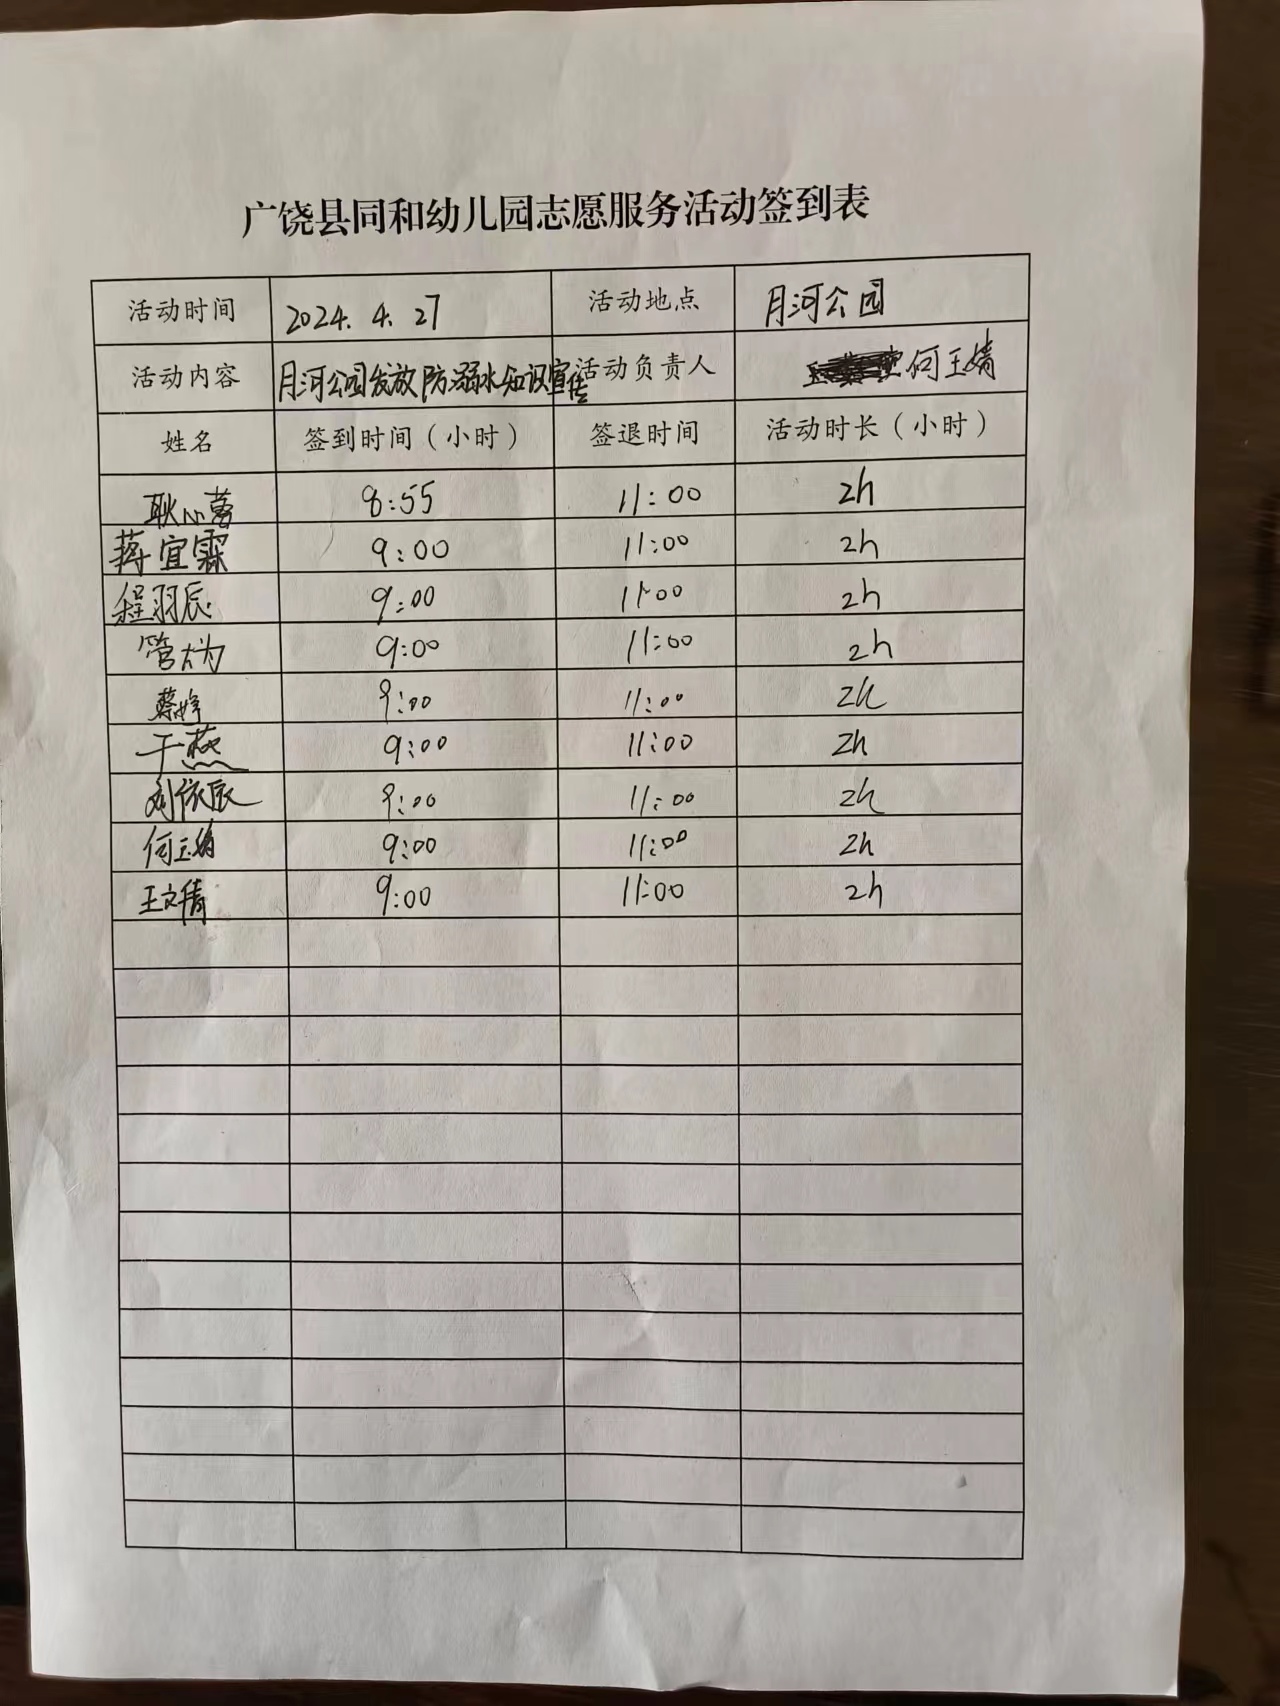 广饶县同和幼儿园志愿服务活动签到表
活动时间 2024.4.27 活动地点 月河公园
活动内容 月河公园发放防溺水知识宣传 活动负责人 何玉婧
姓名 签到时间（小时） 签退时间 活动时长（小时）
耿心 8:55 11:00 2h
蒋宜霖 9:00 11:00 2h
程羽辰 9:00 11:00 2h
管 9:00 11:00 2h
蔡婷 9:00 11:00 2h
于燕 9:00 11:00 2h
刘依辰 9:00 11:00 2h
何玉婧 9:00 11:00 2h
王文倩 9:00 11:00 2h